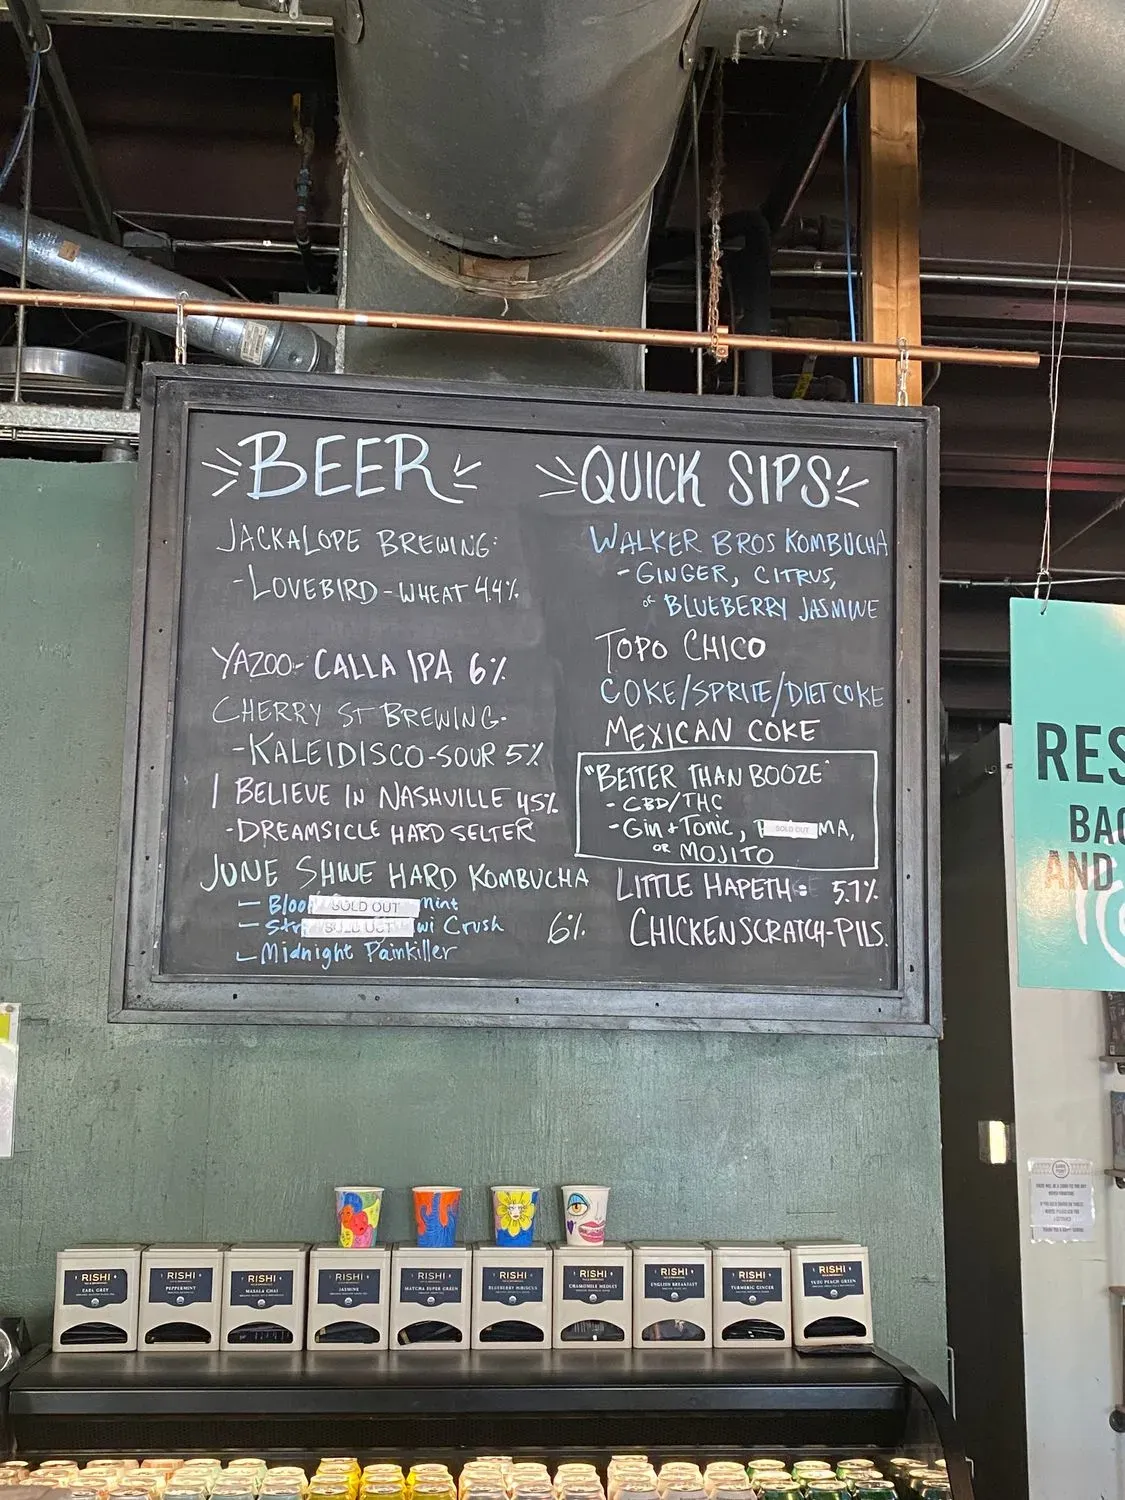 BEER
JACKALOPE BREWING:
-LOVEBIRD-WHEAT 4.4%
YAZOO- CALLA IPA 6%
CHERRY ST BREWING-
-KALEIDISCO-SOUR 5%
I BELIEVE IN NASHVILLE 4.5%
-DREAMSICLE HARD SELTER
JUNE SHINE HARD KOMBUCHA
- Bloo SOLD OUT Mint
- Str SOLD OUT wi Crush 6%
- Midnight Painkiller
QUICK SIPS
WALKER BROS KOMBUCHA
-GINGER, CITRUS,
or BLUEBERRY JASMINE
TOPO CHICO
COKE/SPRITE/DIET COKE
MEXICAN COKE
"BETTER THAN BOOZE"
- CBD/THC
-Gin + Tonic, SOLD OUT MA,
OR MOJITO
LITTLE HAPETH: 5.7%
CHICKENSCRATCH-PILS.
RES
BAC
AND
RISHI
EARL GREY
RISHI
PEPPERMINT
RISHI
MASALA CHAI
RISHI
JASMINE
RISHI
MATCHA SUPER GREEN
RISHI
BLUEBERRY HIBISCUS
RISHI
CHAMOMILE MEDLEY
RISHI
ENGLISH BREAKFAST
RISHI
TURMERIC GINGER
RISHI
YUZU PEACH GREEN